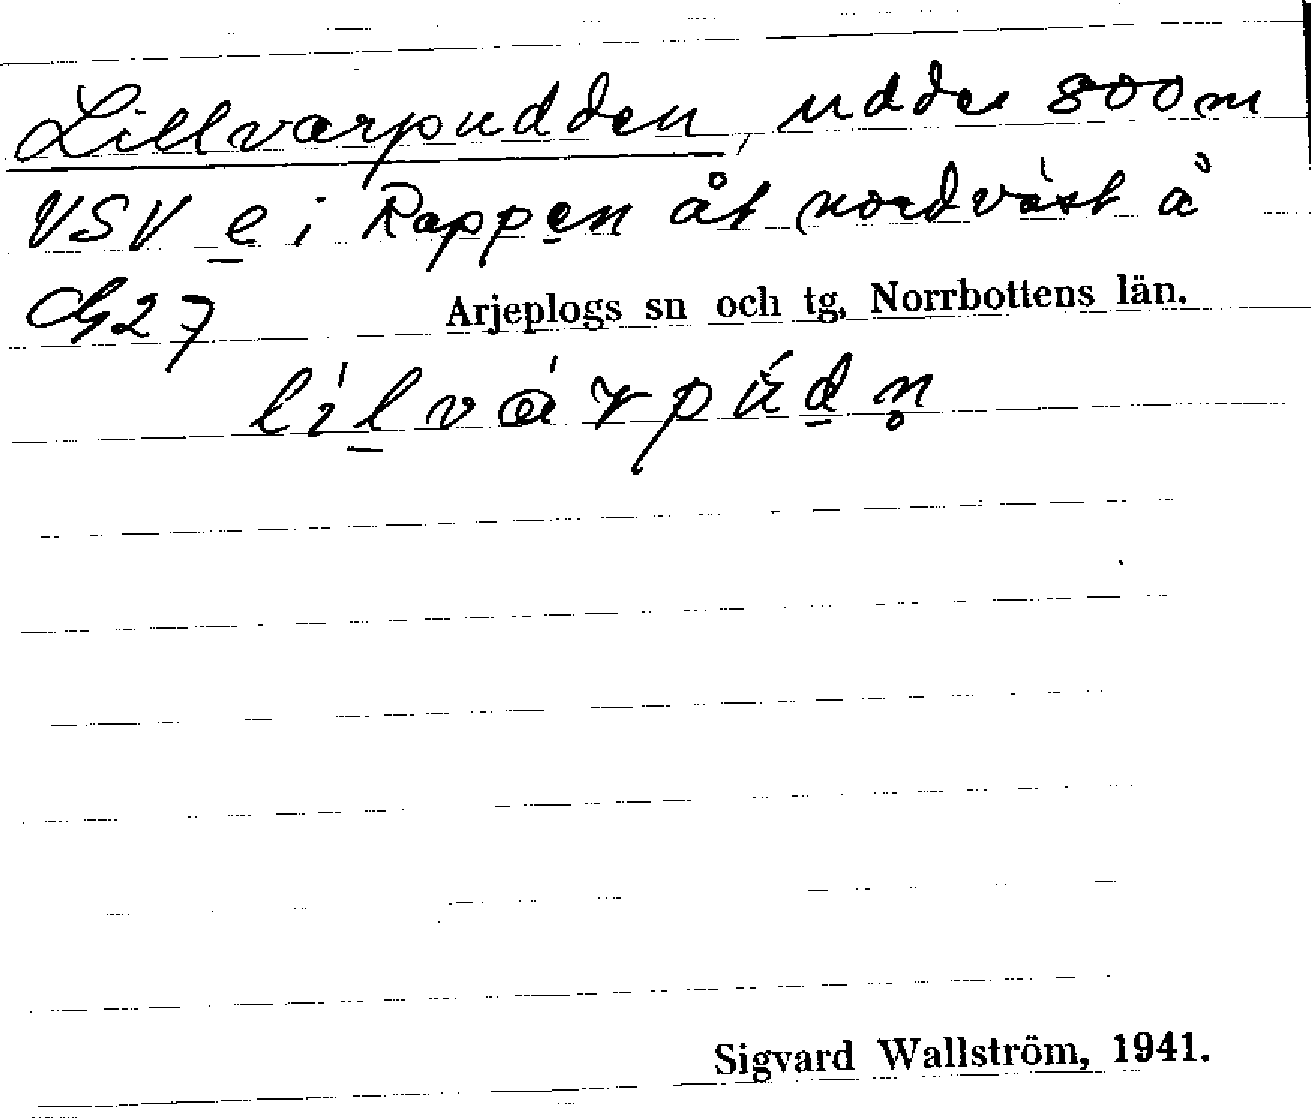 Lillvarpudden, udde 800 m
VSV e i Rappen åt nordväst å
G27 Arjeplogs sn och tg, Norrbottens län.
lílvárpúdn̥
Sigvard Wallström, 1941.